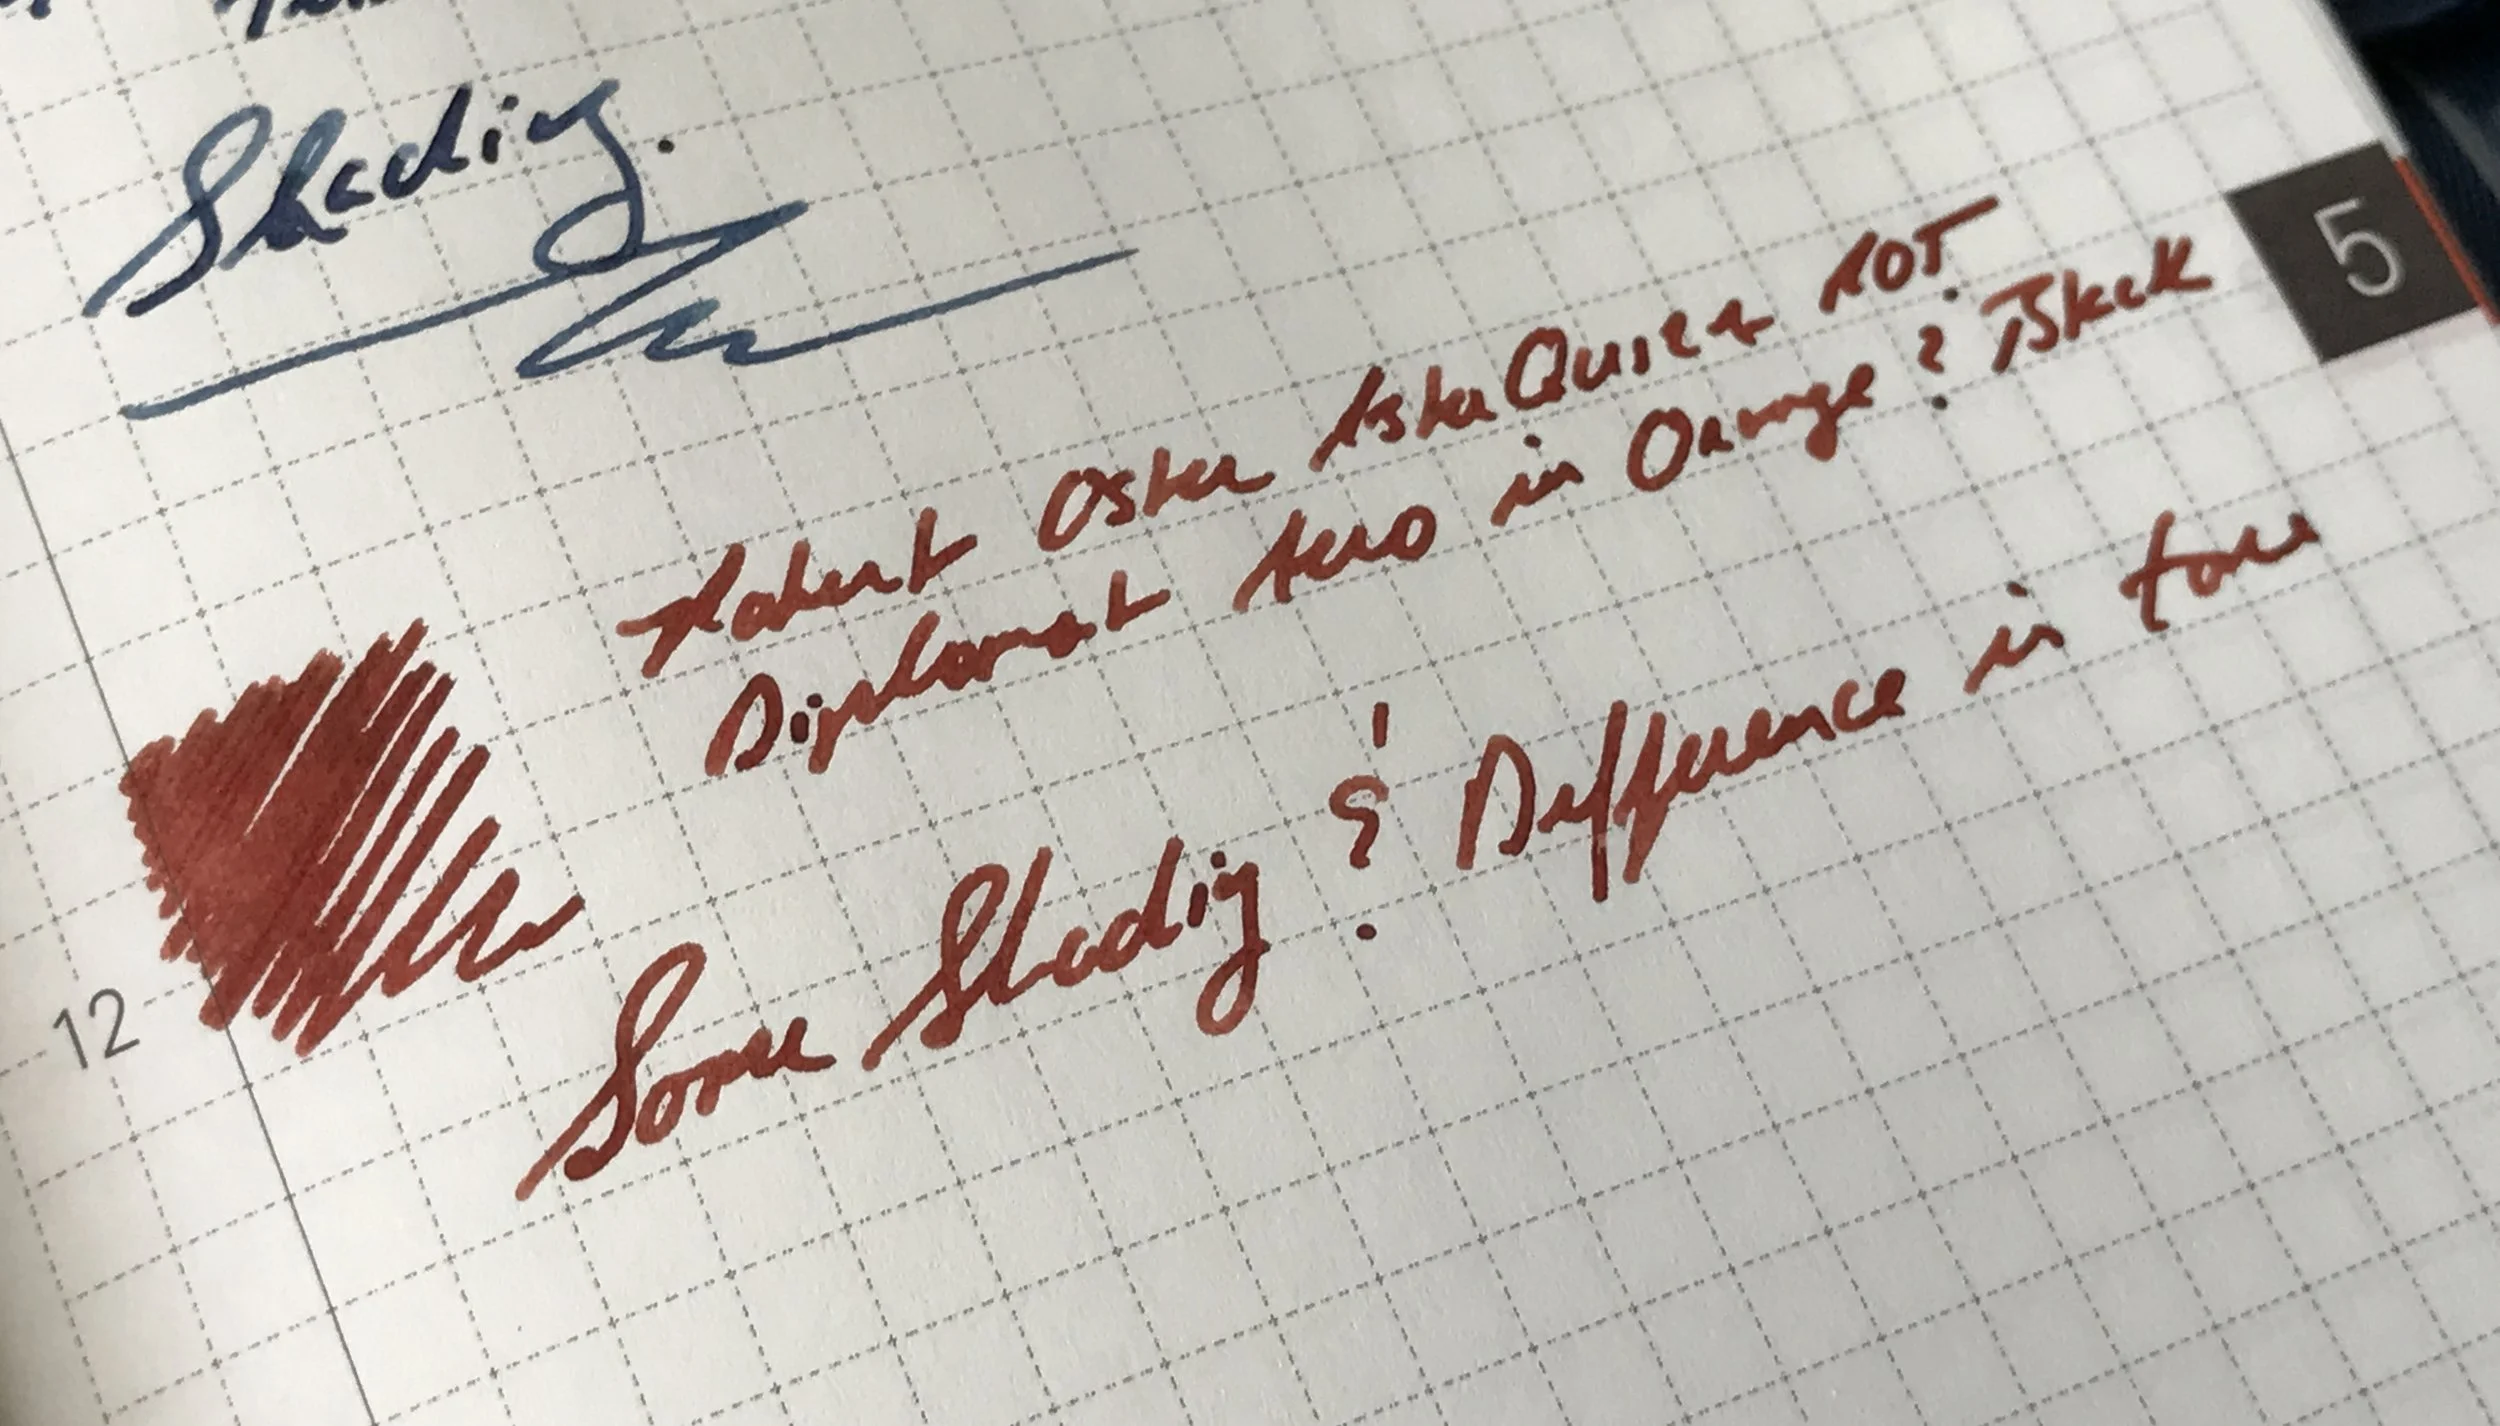 Shading.
5
Robert Oster AstorQuiza ROT
Diplomat Aero in Orange & Black
Some Shading & Difference in tone
12